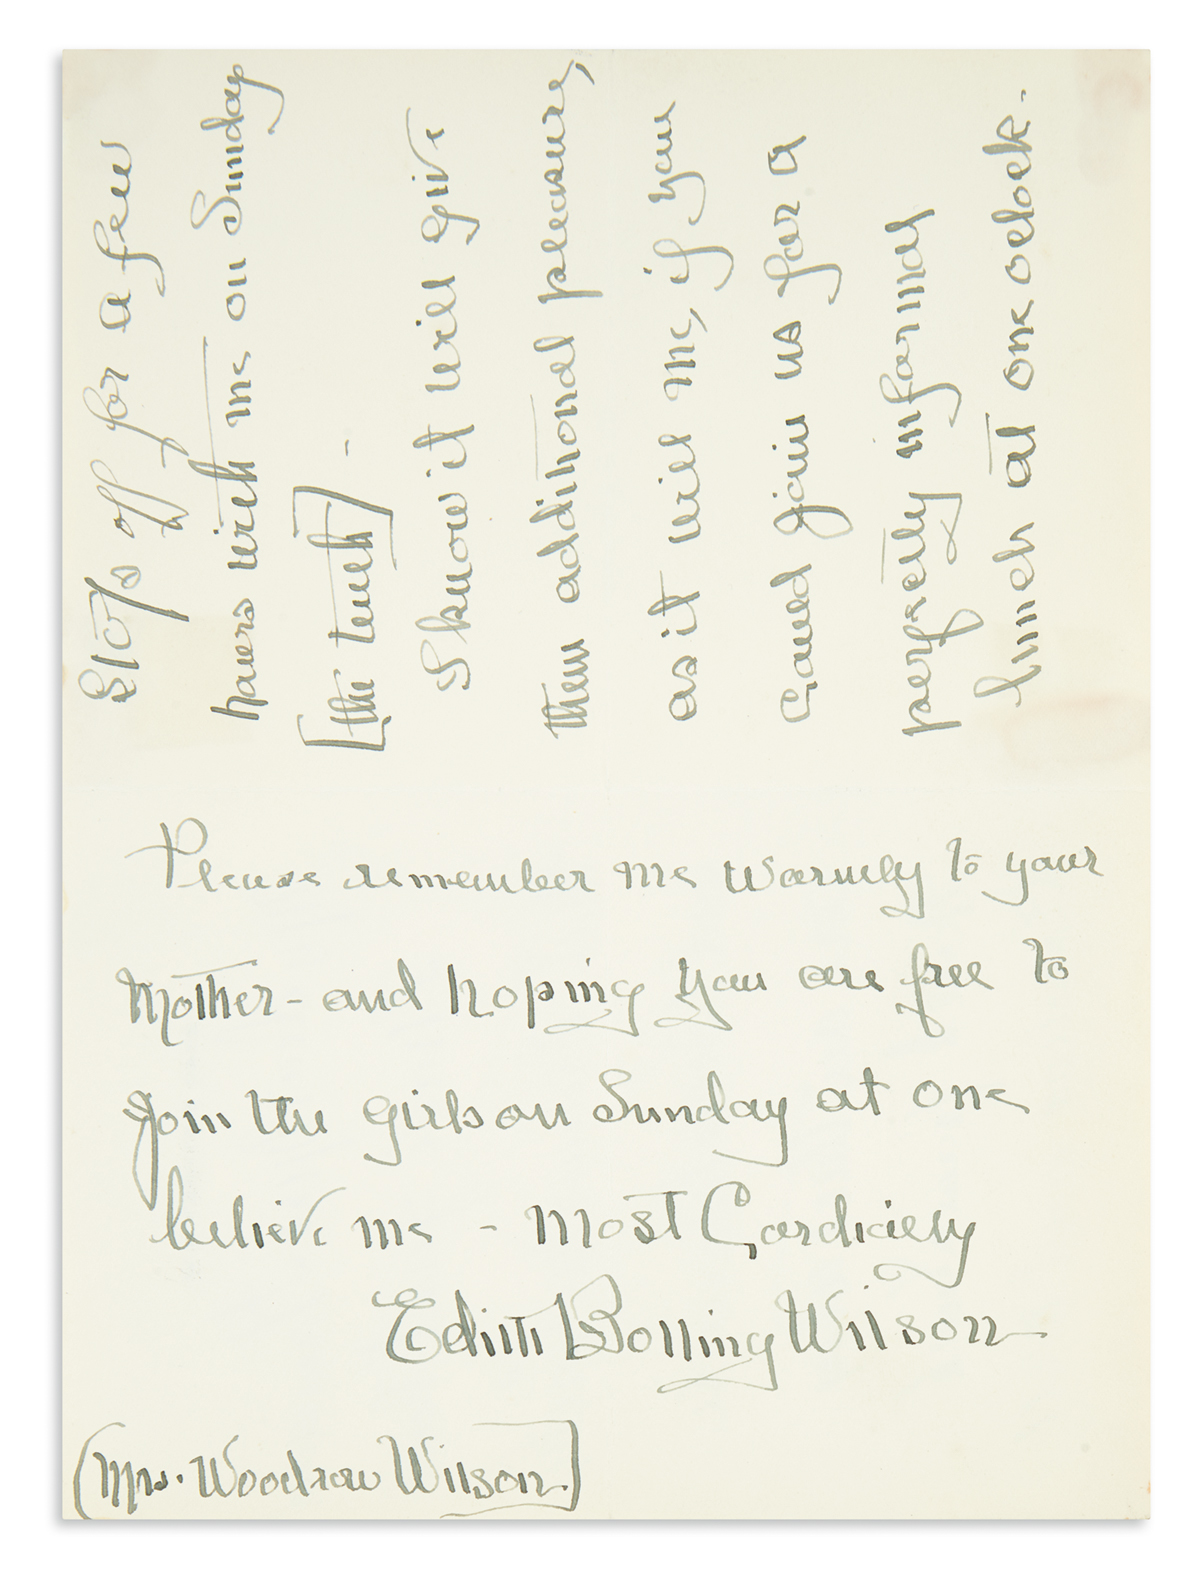 stops off for a few
hours with me on Sunday
[the tenth] -
I know it will give
them additional pleasure,
as it will me, if you
could join us for a
perfectly informal
lunch at one oclock.
Please remember me warmly to your
Mother - and hoping you are free to
join the girls on Sunday at one
believe me - Most Cordially
Edith Bolling Wilson
(Mrs. Woodrow Wilson.]